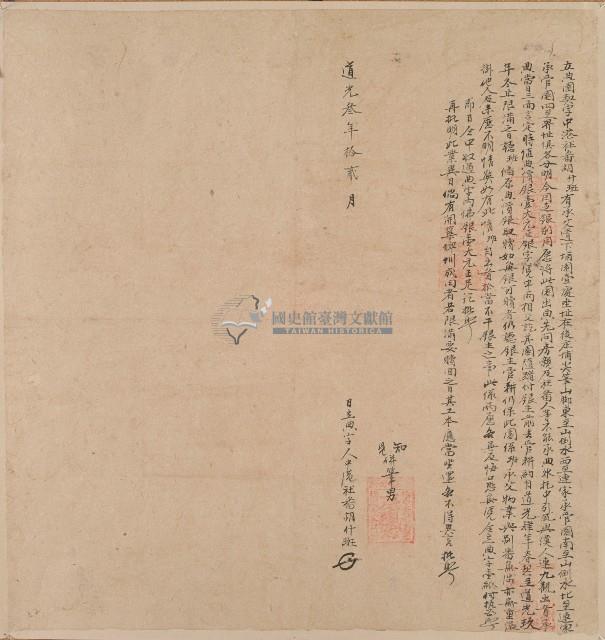 立典園契字中港社番胡什班有承父遺下埔園壹處坐址在後庄埔尖筆山脚東至山倒水西至連家承管園南至山倒水北至連家
承管園四至界址俱各分明今因乏銀別用愿將此園出典先問房親及社番人等不能承典外托中引就與漢人連九觀出首承
典當日三面言定時值典價銀壹大元正銀字即日仝中兩相交訖其園隨踏付銀主前去管耕約自道光肆年春起至道光玖
年冬止限滿之日聽班備原典價銀取贖如無銀可贖者仍聽銀主管耕仍保此園係班承父物業與別番無干亦無重張
掛他人及來歷不明情弊如有此情班自出首抵當不干銀主之事此係兩愿各無反悔口恐無憑今立典字壹紙付執為炤
即日仝中收過典字內佛銀壹大元正足訖批炤
再批明此業異日倘有開築埤圳成田者若限滿要贖回之日其工本應當坐還各不得異言批炤
道光叁年拾貳月
知見併筆男
日立典字人中港社番胡什班
國史館臺灣文獻館
TAIWAN HISTORICA